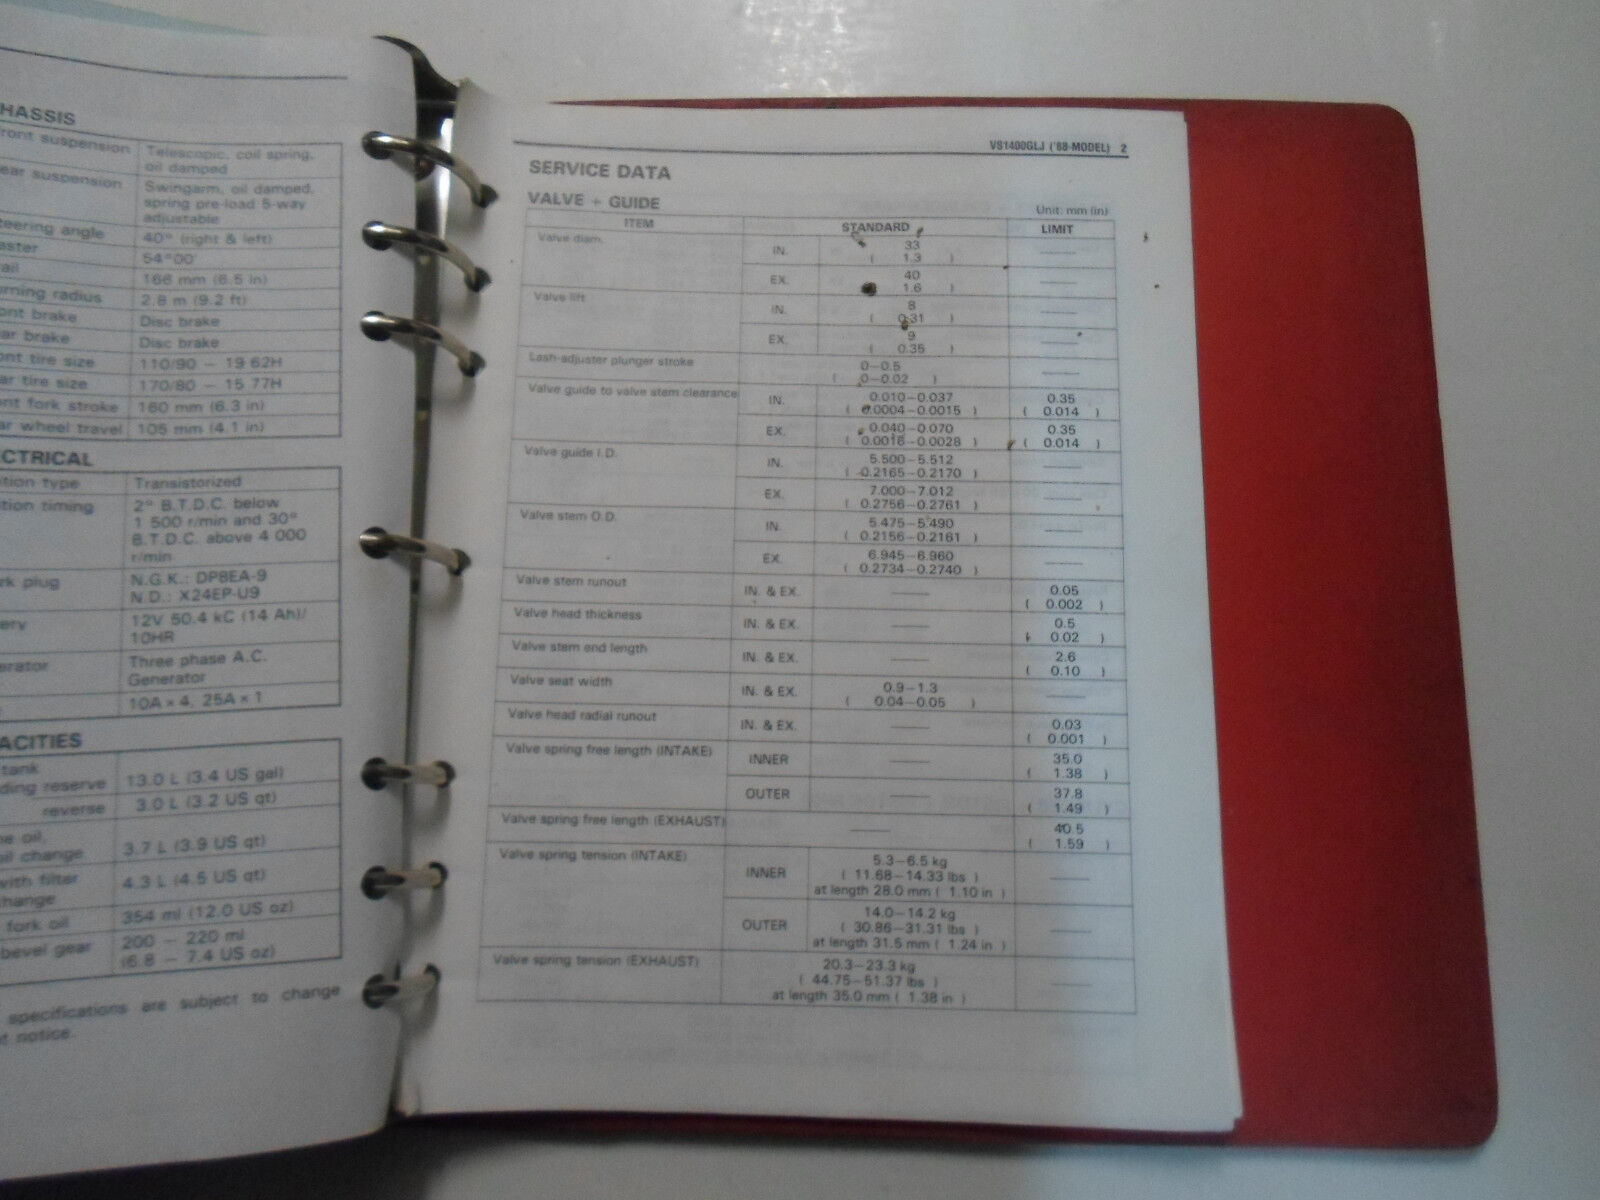 HASSIS
ront suspension Telescopic, coil spring,
oil damped
ear suspension Swingarm, oil damped,
spring pre-load 5-way
adjustable
teering angle 40° (right & left)
aster 54°00'
ail 166 mm (6.5 in)
urning radius 2.8 m (9.2 ft)
ont brake Disc brake
ar brake Disc brake
ont tire size 110/90 – 19 62H
ar tire size 170/80 – 15 77H
ont fork stroke 160 mm (6.3 in)
ar wheel travel 105 mm (4.1 in)
CTRICAL
ition type Transistorized
ition timing 2° B.T.D.C. below
1 500 r/min and 30°
B.T.D.C. above 4 000
r/min
rk plug N.G.K.: DP8EA-9
N.D.: X24EP-U9
ery 12V 50.4 kC (14 Ah)/
10HR
erator Three phase A.C.
Generator
10A × 4, 25A × 1
ACITIES
tank
ding reserve 13.0 L (3.4 US gal)
reverse 3.0 L (3.2 US qt)
ne oil,
oil change 3.7 L (3.9 US qt)
with filter 4.3 L (4.5 US qt)
hange
fork oil 354 ml (12.0 US oz)
bevel gear 200 – 220 ml
(6.8 – 7.4 US oz)
specifications are subject to change
t notice.
VS1400GLJ ('88-MODEL) 2
SERVICE DATA
VALVE + GUIDE Unit: mm (in)
ITEM STANDARD LIMIT
Valve diam. IN. 33
( 1.3 )
EX. 40
1.6 )
Valve lift IN. 8
( 0.31 )
EX. 9
( 0.35 )
Lash-adjuster plunger stroke 0–0.5
( 0–0.02 )
Valve guide to valve stem clearance IN. 0.010–0.037 0.35
( 0.0004–0.0015 ) ( 0.014 )
EX. 0.040–0.070 0.35
( 0.0016–0.0028 ) ( 0.014 )
Valve guide I.D. IN. 5.500–5.512
( 0.2165–0.2170 )
EX. 7.000–7.012
( 0.2756–0.2761 )
Valve stem O.D. IN. 5.475–5.490
( 0.2156–0.2161 )
EX. 6.945–6.960
( 0.2734–0.2740 )
Valve stem runout IN. & EX. 0.05
( 0.002 )
Valve head thickness IN. & EX. 0.5
( 0.02 )
Valve stem end length IN. & EX. 2.6
( 0.10 )
Valve seat width IN. & EX. 0.9–1.3
( 0.04–0.05 )
Valve head radial runout IN. & EX. 0.03
( 0.001 )
Valve spring free length (INTAKE) INNER 35.0
( 1.38 )
OUTER 37.8
( 1.49 )
Valve spring free length (EXHAUST) 40.5
( 1.59 )
Valve spring tension (INTAKE) INNER 5.3–6.5 kg
( 11.68–14.33 lbs )
at length 28.0 mm ( 1.10 in )
OUTER 14.0–14.2 kg
( 30.86–31.31 lbs )
at length 31.5 mm ( 1.24 in )
Valve spring tension (EXHAUST) 20.3–23.3 kg
( 44.75–51.37 lbs )
at length 35.0 mm ( 1.38 in )